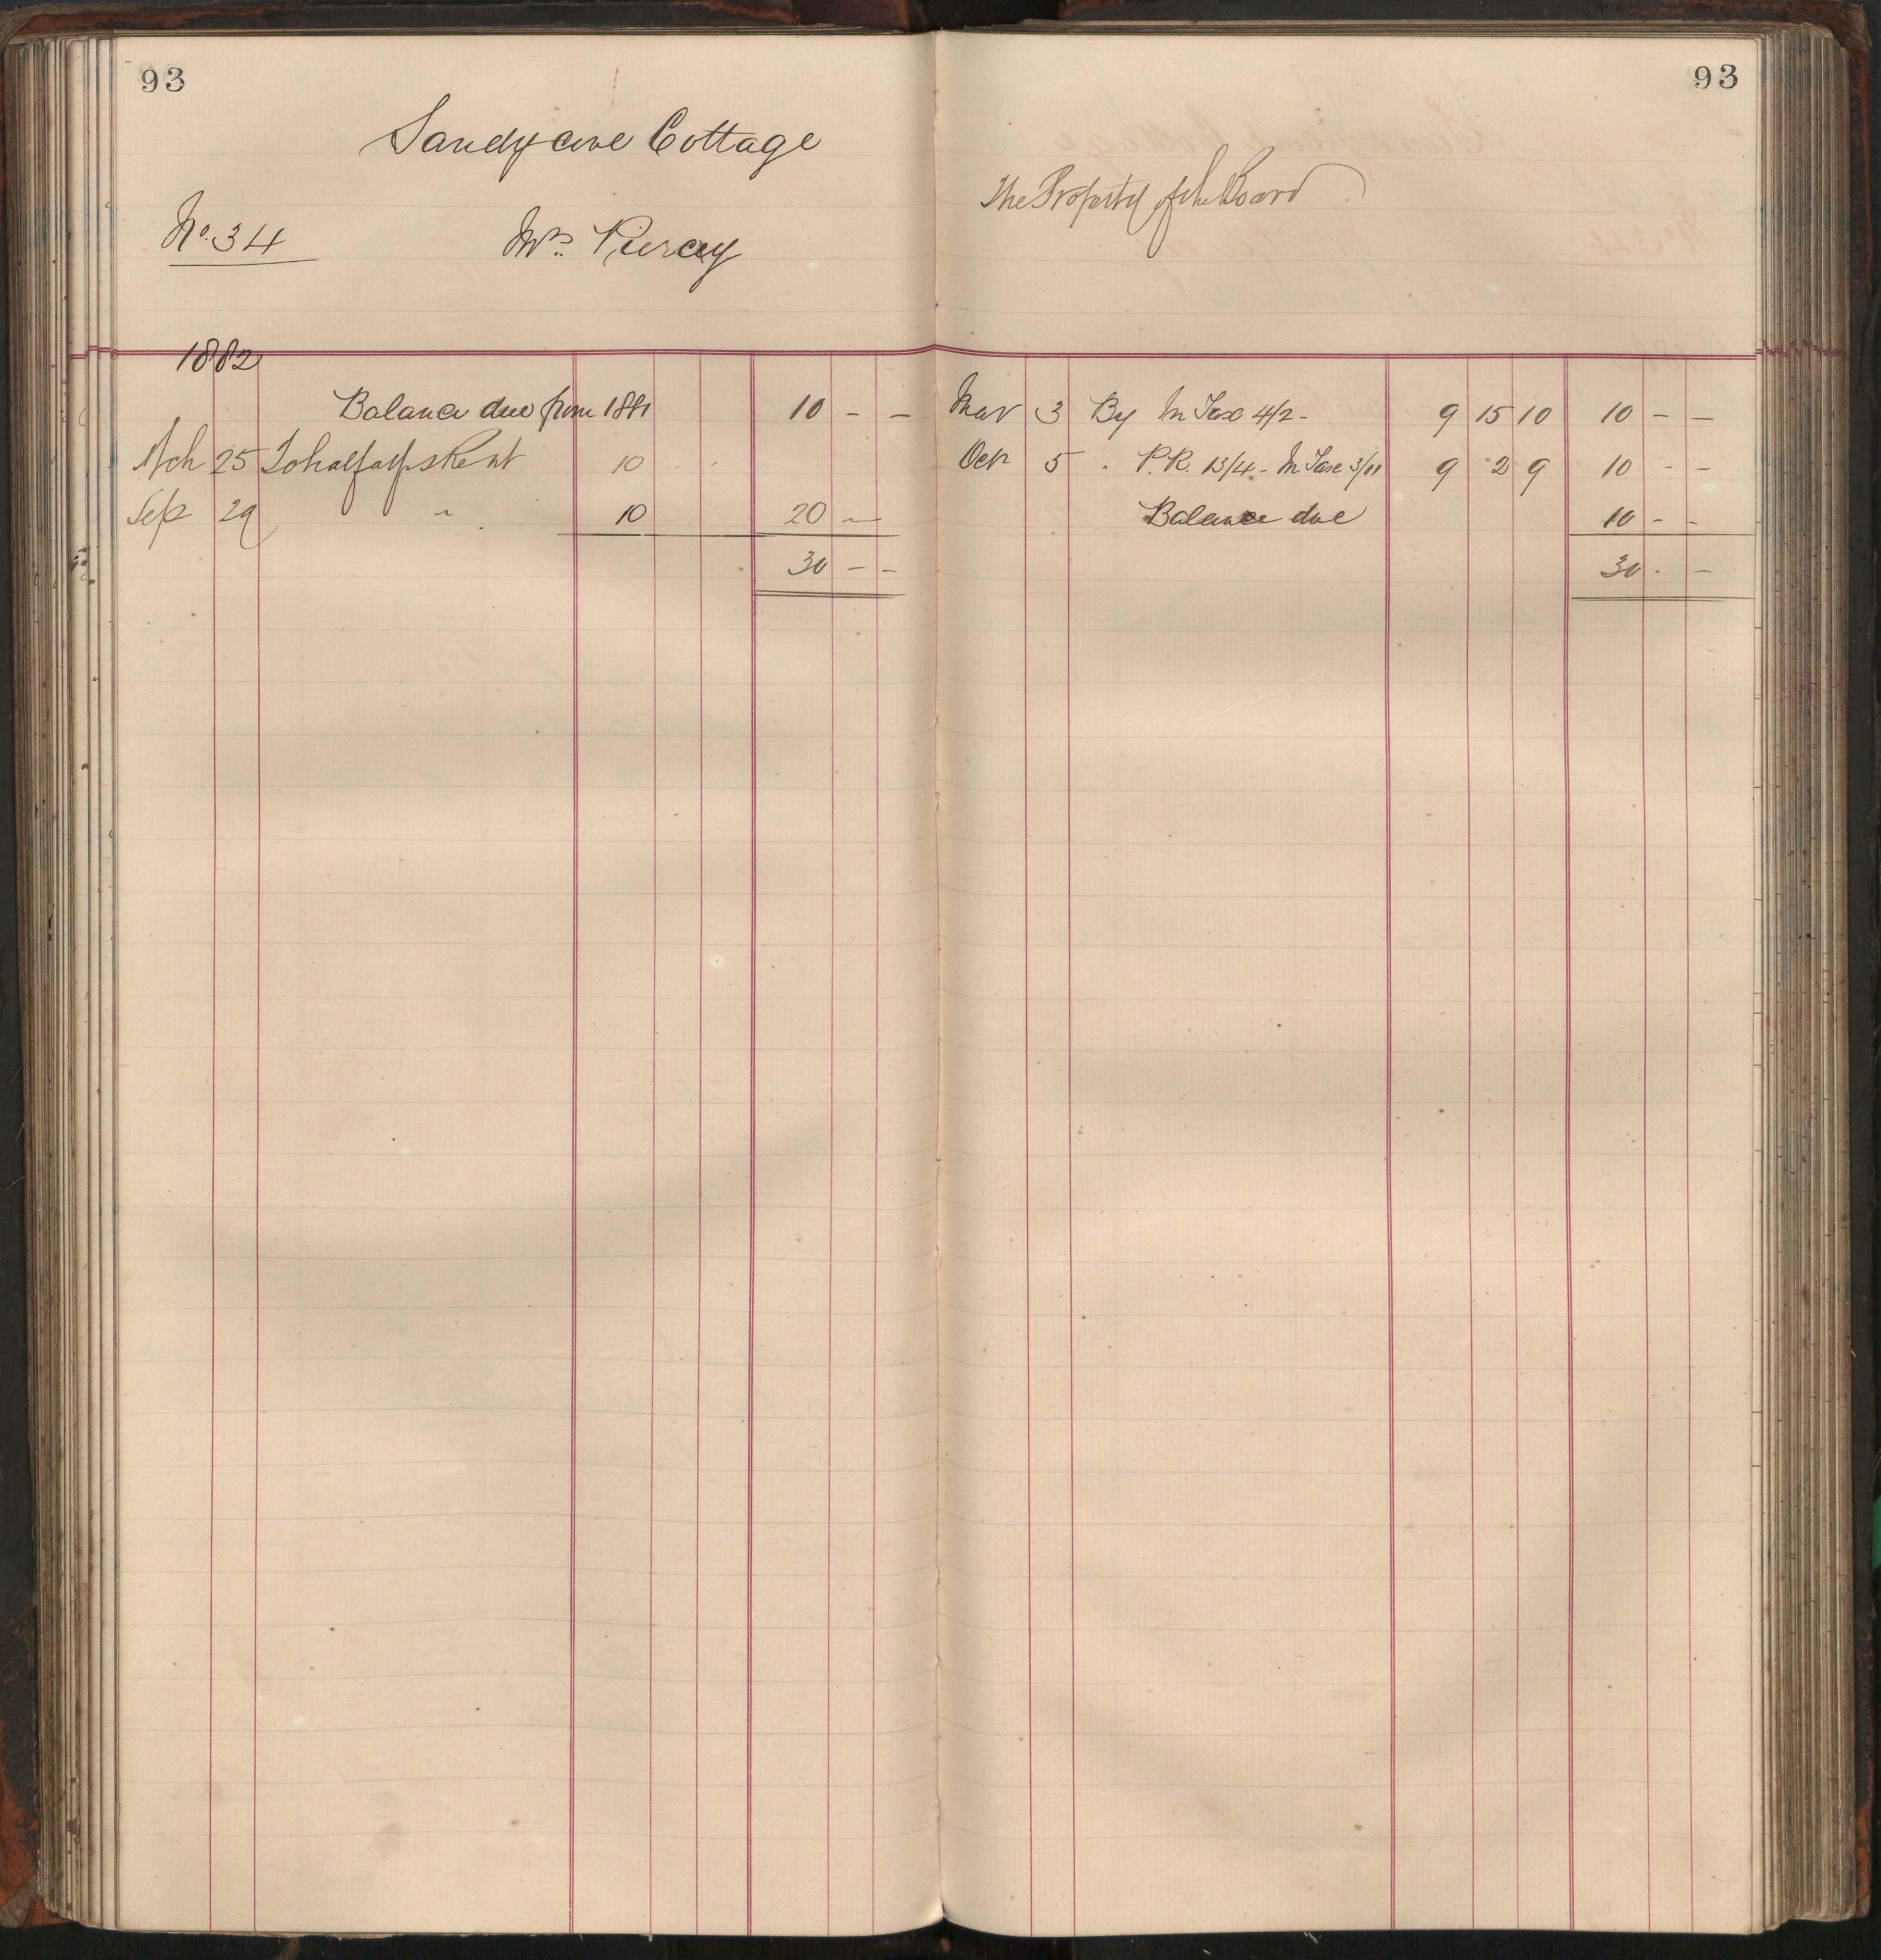 93
Sandycove Cottage
No. 34 Mrs. Piercy
1882
Balance due from 1881 10 - -
Mch 25 To half ays Rent 10
Sep 29 " 10 20 -
30 - -
93
The Property of the Board
Mar 3 By In Tax 4/2 - 9 15 10 10 - -
Oct 5 . P.R. 13/4 - In Tax 3/11 9 2 9 10 - -
Balance due 10 - -
30 - -